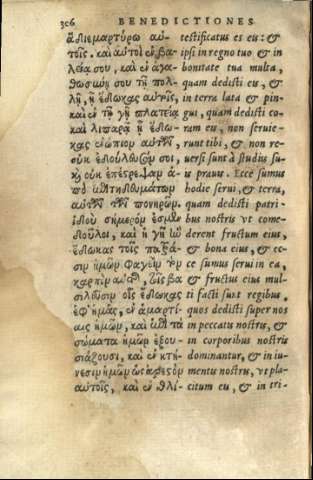 306 BENEDICTIONES
ἐπιεμαρτύρω αὐ-
τοῖς. καὶ αὐτοὶ ἐν βα-
λείᾳ σου, καὶ ἐν ἀγα-
θωσύνῃ σου τῇ πολ-
λῇ, ᾗ ἔδωκας αὐτοῖς,
καὶ ἐν τῇ γῇ πλατείᾳ
καὶ λιπαρᾷ ᾗ ἔδω-
κας ἐνώπιον αὐτῶν,
οὐκ ἐδούλευσάν σοι,
καὶ οὐκ ἐπέστρεψαν ἀ-
πὸ ἐπιτηδευμάτων
αὐτῶν τῶν πονηρῶν.
ἰδοὺ σήμερόν ἐσμεν
δοῦλοι, καὶ ἡ γῆ ἣν
ἔδωκας τοῖς πατρά-
σιν ἡμῶν φαγεῖν τὸν
καρπὸν αὐτῆς,
σιλεῦσιν οἷς ἔδωκας
ἐφ' ἡμᾶς, ἐν ἁμαρτί-
αις ἡμῶν, καὶ ἐπὶ τὰ
σώματα ἡμῶν ἐξου-
σιάζουσι, καὶ ἐν κτή-
νεσιν ἡμῶν ὡς ἀρεστὸν
αὐτοῖς, καὶ ἐν θλί-
testificatus es eu: &
ipsi in regno tuo & in
bonitate tua multa,
quam dedisti eu, &
in terra lata & pin-
gui, quam dedisti co-
ram eu, non seruie-
runt tibi, & non re-
uersi sunt à studiis su-
is prauis. Ecce sumus
hodie serui, & terra,
quam dedisti patri-
bus nostris vt come-
derent fructum eius,
& bona eius, & ec-
ce sumus serui in ea,
& fructus eius mul-
ti facti sunt regibus,
quos dedisti super nos
in peccatis nostris, &
in corporibus nostris
dominantur, & in iu-
mentis nostris, vt pla-
citum eu, & in tri-